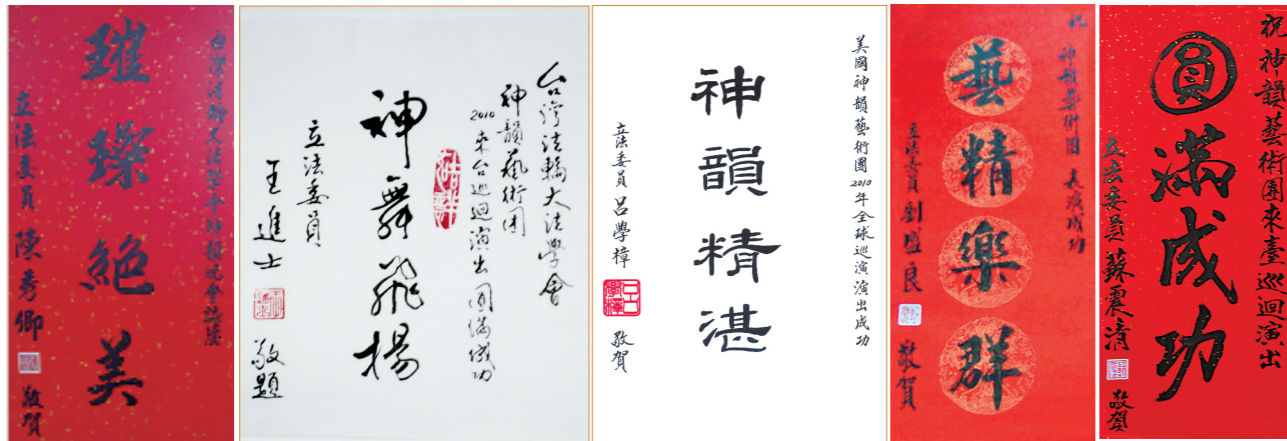 台灣法輪大法學會神韻晚會誌慶
璀璨絕美
立法委員 陳秀卿 敬賀
台灣法輪大法學會
神韻藝術团
2010來台巡迴演出圓滿成功
神舞飛揚
立法委員
王進士 敬題
美國神韻藝術團2010年全球巡演演出成功
神韻精湛
立法委員 呂學樟 敬賀
祝
神韻藝術團 表演成功
藝精樂群
立法委員劉盛良 敬賀
祝神韻藝術團來臺巡迴演出
圓滿成功
立法委員蘇震清 敬賀